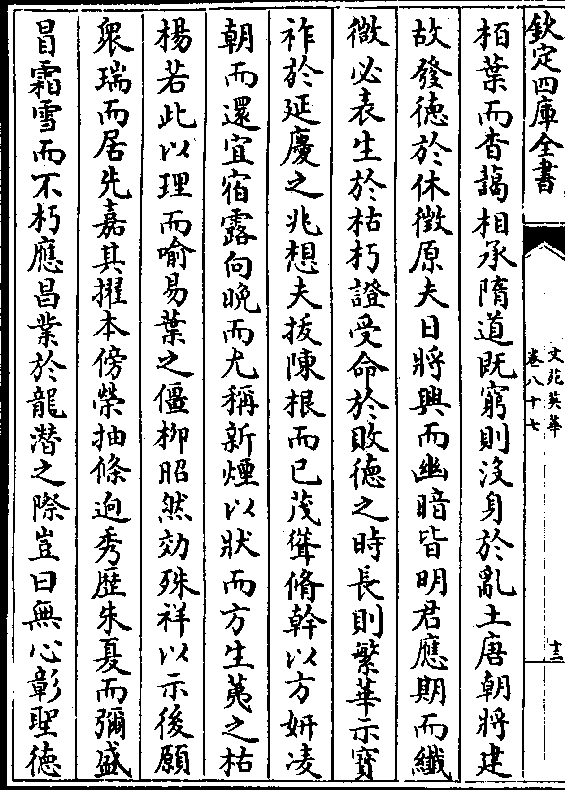 欽定四庫全書
文苑英華
卷八十七
十三
栢葉而杳藹相承隋道既窮則沒身於亂土唐朝將建
故發徳於休徴原夫日將興而幽暗皆明君應期而纖
微必表生於枯朽證受命於敗徳之時長則繁華示寳
祚於延慶之兆想夫拔陳根而已茂聳脩幹以方妍凌
朝而還宜宿露向晚而尤稱新煙以狀而方生荑之枯
楊若此以理而喻易葉之僵栁昭然効殊祥以示後願
衆瑞而居先嘉其擢本傍榮抽條迥秀歴朱夏而彌盛
冒霜雪而不朽應昌業於龍潛之際豈曰無心彰聖徳